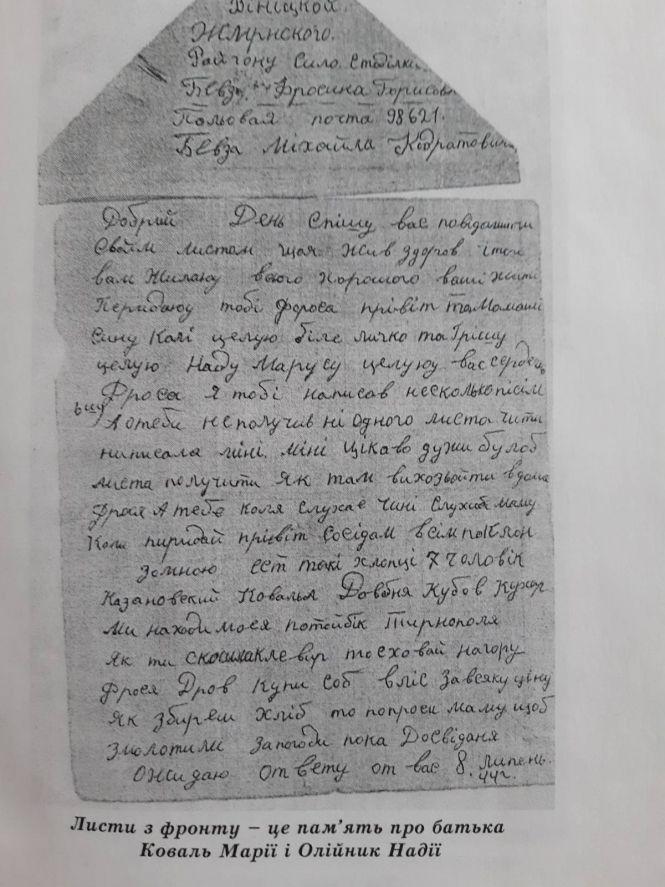 Вініцкой.
Жмринского.
Райгону Сило. Стоділки
Бевзу Фросина Горисов
Польовая почта 98621.
Бевза Міхайла Кодратович
Добрий День спішу вас повідамити
своїм листом щоя жив здоров і того
вам жилаю всього хорошого ваші житі
Перидаю тобі фроса прівіт та Мамаші
сину Колі целую біле личко та Грішу
целую Наду Марусу целую вас сердеш
ьшу Фроса я тобі написав несколько писім
А отеби неполучив ні одного листа чити
написала міні. міні цікаво дужи було б
листа получити як там виходьойти вдома
Фрося А тебе коля слухає чині слухай маму
Коля пиридай прівіт сосідам всім поклон
зомною ест такі хлопці 7 чоловік
Казановский Коваль Довбня Кубов Кухар
Ми находимося потойбік Тирнополя
Як ти скосила клевір то сховай нагору
Фрося Дров Купи соб вліс за всяку ціну
Як збиреш хліб то попроси маму щоб
змолотили запогоди пока Досвіданя
Ожидаю ответу от вас 8. липень.
44г.
Листи з фронту – це пам’ять про батька
Коваль Марії і Олійник Надії